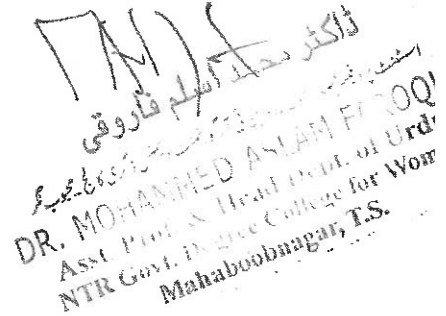 ڈاکٹر محمد اسلم فاروقی
اسسٹنٹ پروفیسر
DR. MOHAMMED ASLAM FAROOQI
Asst. Prof. & Head Dept. of Urdu
NTR Govt. Degree College for Wom
Mahaboobnagar, T.S.